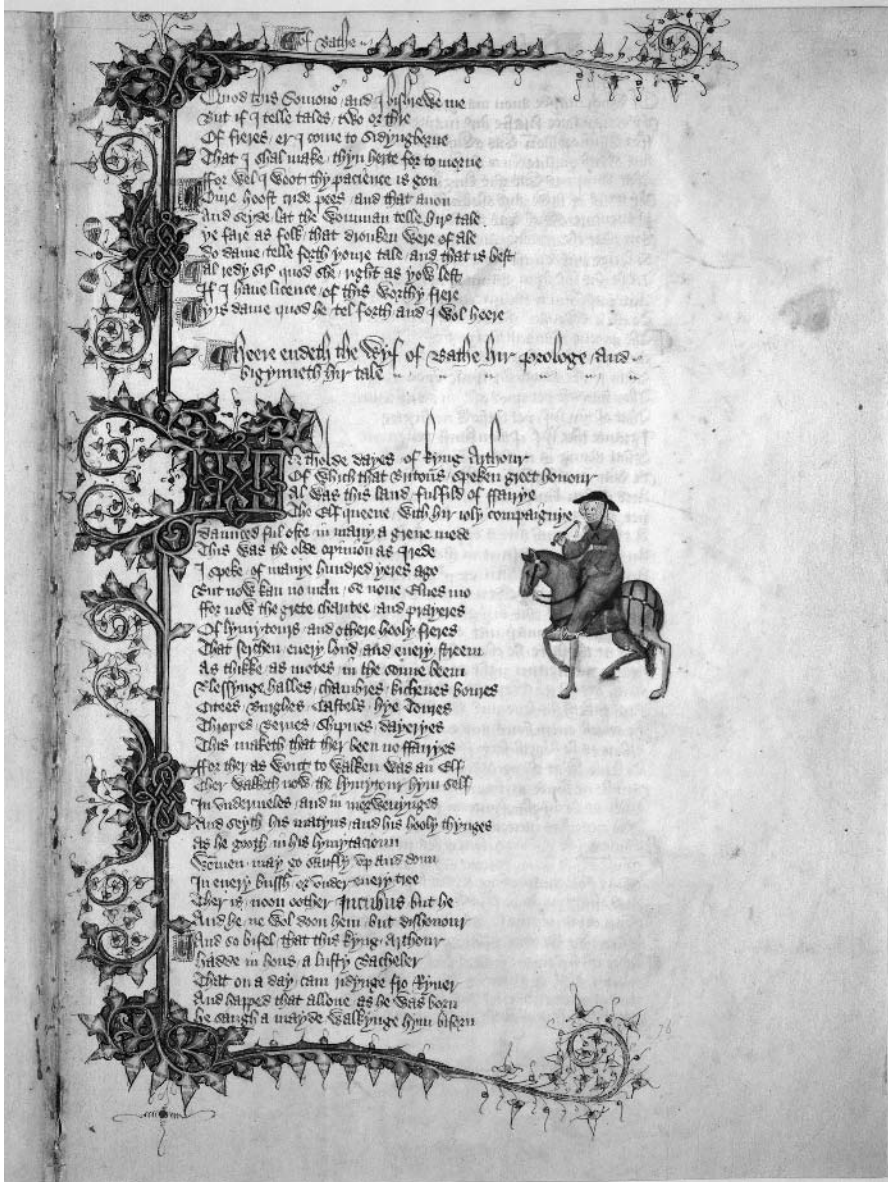 Of Bathe
Quod this Somonour and I bishrewe me
But if I telle tales two or thre
Of freres er I come to Sidyngborne
That I shal make thyn herte for to morne
ffor wel I woot thy pacience is gon
Oure hoost cride pees and that anon
And seyde lat the womman telle hire tale
ye fare as folk that dronken were of ale
Do dame telle forth youre tale and that is best
Al redy sire quod she right as yow lest
If I haue licence of this worthy frere
yis dame quod he tel forth and I wol heere
Heere endeth the Wyf of Bathe hir prologe and
bigynneth hir tale
In tholde dayes of kyng Arthour
Of which that Britons speken greet honour
Al was this land fulfild of ffairye
The Elf queene with hir ioly compaignye
daunced ful ofte in many a grene mede
This was the olde opinion as I rede
I speke of manye hundred yeres ago
But now kan no man se none Elues mo
ffor now the grete charitee and prayeres
Of lymytours and othere hooly freres
That serchen euery lond and euery streem
As thikke as motes in the sonne beem
Blessynge halles chambres kichenes boures
Citees Burghes Castels hye Toures
Thropes Bernes Shipnes dayeryes
This maketh that ther been no ffairyes
ffor ther as wont to walken was an Elf
Ther walketh now the lymytour hym self
In vndermeles and in morwenynges
And seyth his matyns and his hooly thynges
As he gooth in his lymytacioun
Wommen may go saufly vp and doun
In euery bussh or vnder euery tree
Ther is noon oother Incubus but he
And he ne wol doon hem but dishonour
And so bifel that this kyng Arthour
hadde in hous a lusty Bacheler
That on a day cam ridynge fro Ryuer
And happed that allone as he was born
he saugh a mayde walkynge hym biforn
76